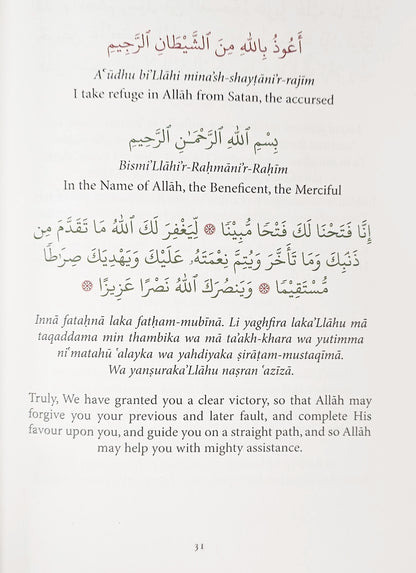 أَعُوذُ بِاللهِ مِنَ الشَّيْطَانِ الرَّجِيمِ
Aʿūdhu bi’Llāhi mina’sh-shayṭāni’r-rajīm
I take refuge in Allāh from Satan, the accursed
بِسْمِ اللهِ الرَّحْمَـٰنِ الرَّحِيمِ
Bismi’Llāhi’r-Raḥmāni’r-Raḥīm
In the Name of Allāh, the Beneficent, the Merciful
إِنَّا فَتَحْنَا لَكَ فَتْحًا مُّبِينًا ۞ لِّيَغْفِرَ لَكَ اللهُ مَا تَقَدَّمَ مِن
ذَنۢبِكَ وَمَا تَأَخَّرَ وَيُتِمَّ نِعْمَتَهُۥ عَلَيْكَ وَيَهْدِيَكَ صِرَٰطًا
مُّسْتَقِيمًا ۞ وَيَنصُرَكَ اللهُ نَصْرًا عَزِيزًا ۞
Innā fataḥnā laka fatḥam-mubīnā. Li yaghfira laka’Llāhu mā
taqaddama min thambika wa mā ta’akh-khara wa yutimma
niʿmatahū ʿalayka wa yahdiyaka ṣirāṭam-mustaqīmā.
Wa yanṣuraka’Llāhu naṣran ʿazīzā.
Truly, We have granted you a clear victory, so that Allāh may
forgive you your previous and later fault, and complete His
favour upon you, and guide you on a straight path, and so Allāh
may help you with mighty assistance.
31